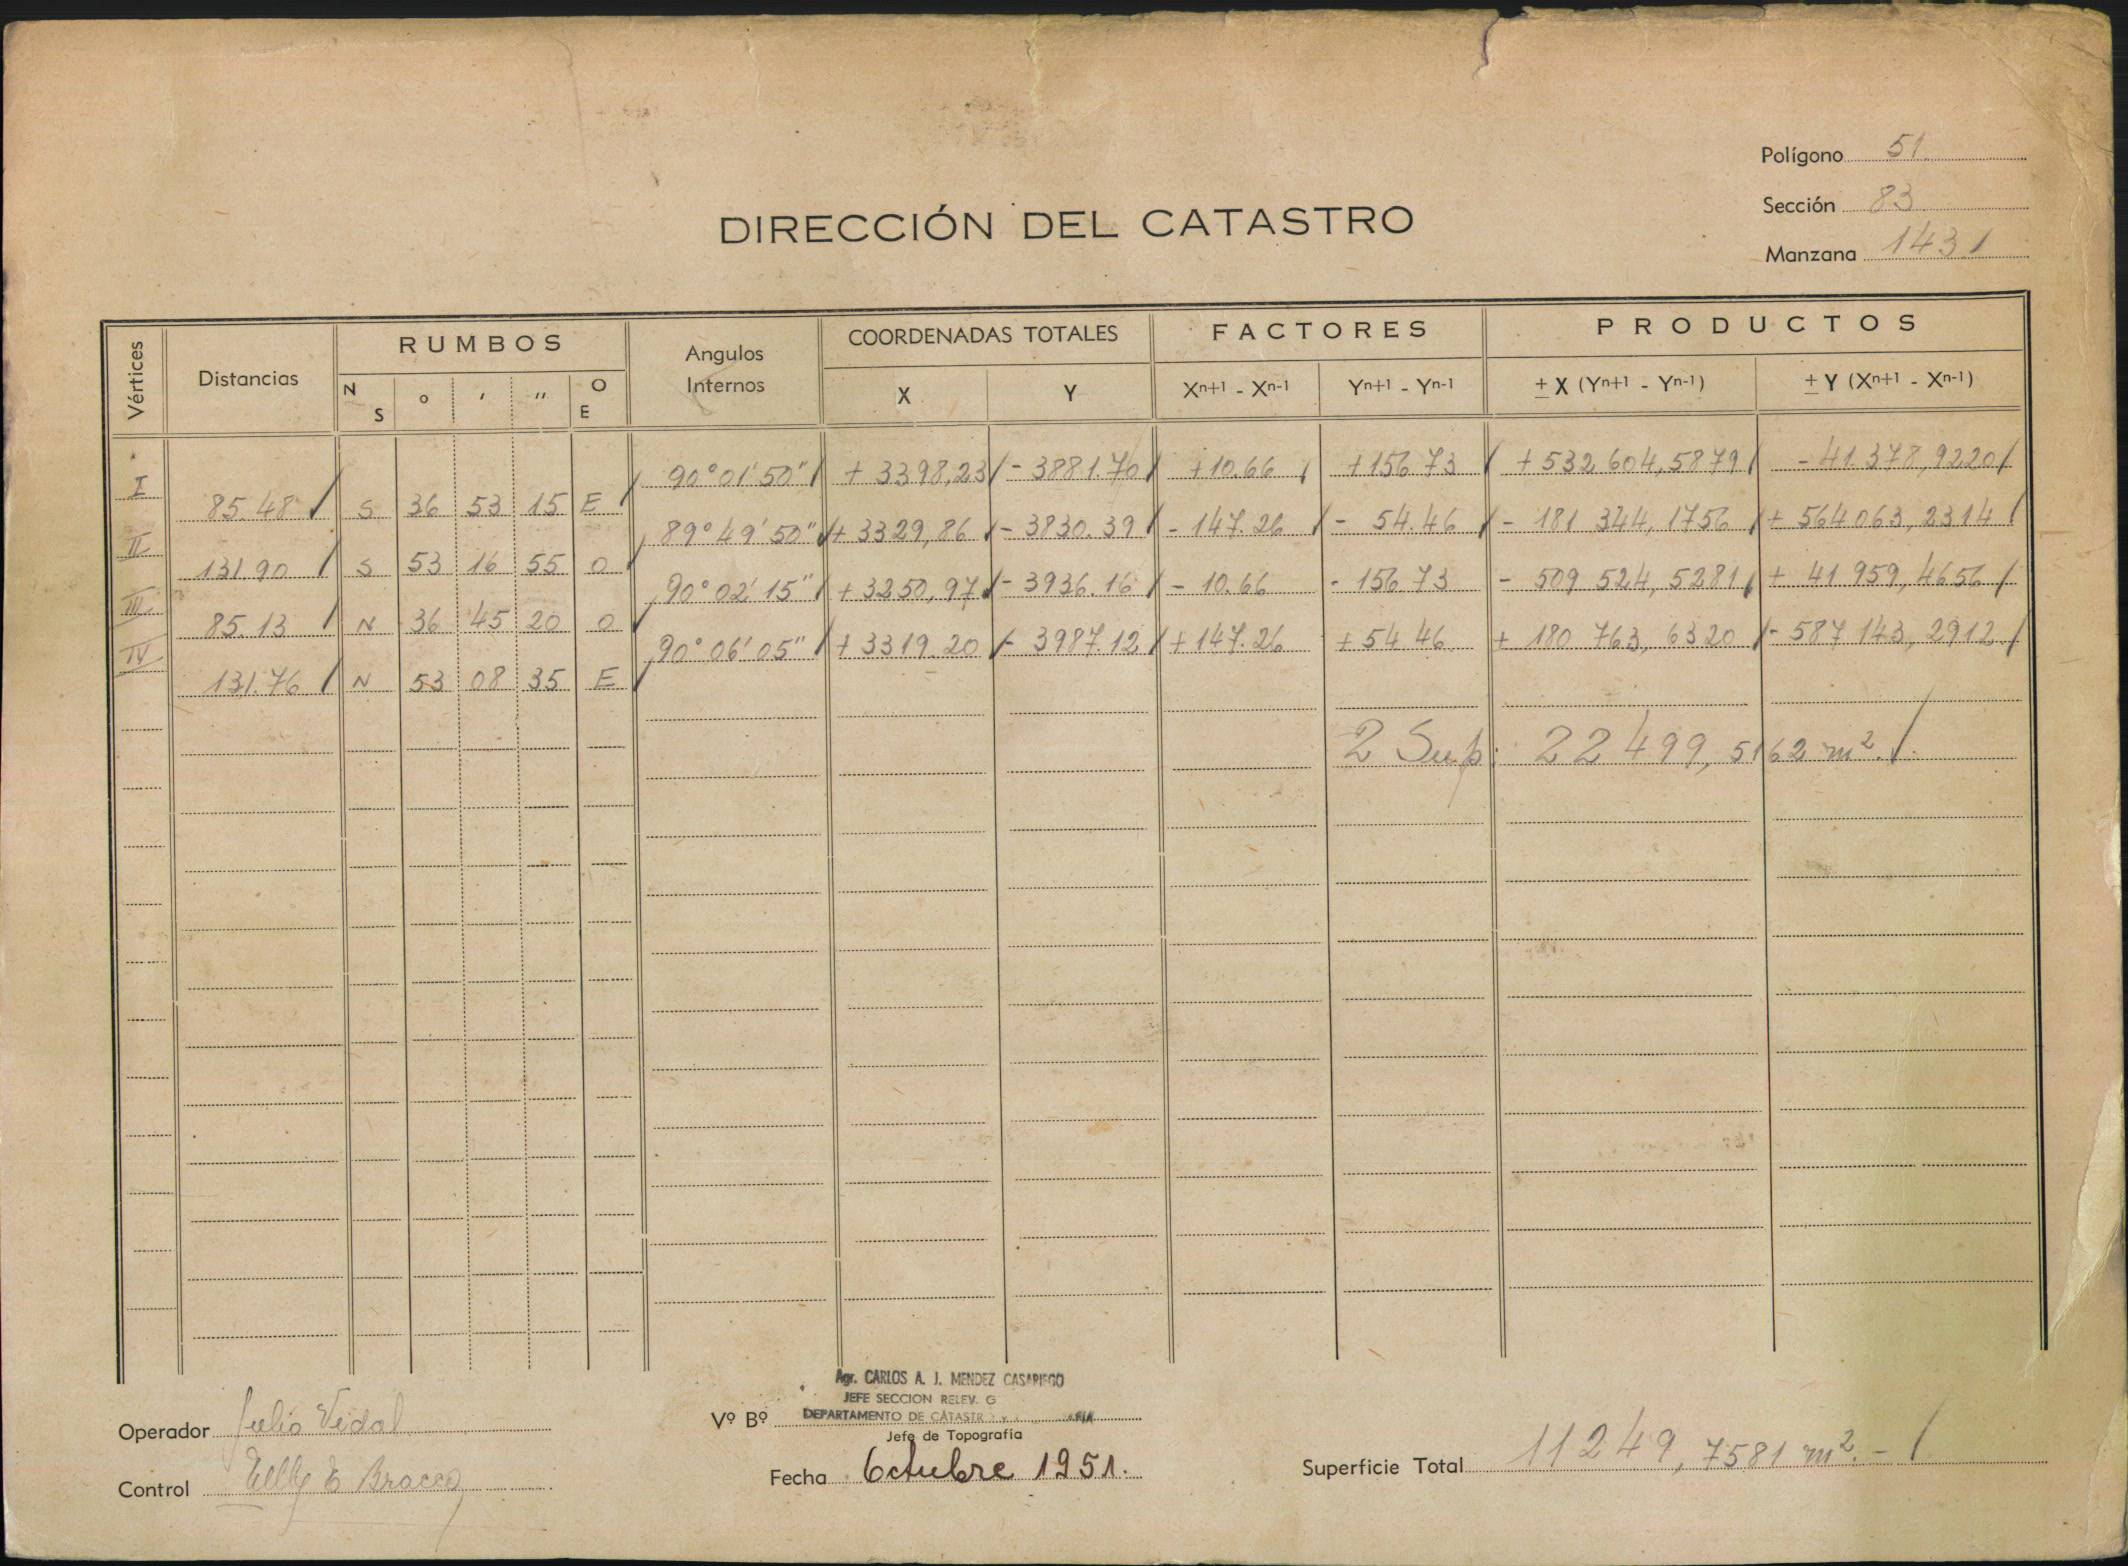 Polígono 51.
Sección 83
Manzana 1431
DIRECCIÓN DEL CATASTRO
Vértices Distancias RUMBOS Angulos Internos COORDENADAS TOTALES FACTORES PRODUCTOS
N S o ′ ″ O E X Y Xn+1 - Xn-1 Yn+1 - Yn-1 ± X (Yn+1 - Yn-1) ± Y (Xn+1 - Xn-1)
I 90°01'50" / + 3398,23 / - 3881.70 / +10.66 / +156.73 / + 532 604,5879 / - 41.378,9220 /
85.48 / S 36 53 15 E /
II 89°49'50" / + 3329,86 / - 3830.39 / - 147.26 / - 54.46 / - 181 344,1756 / + 564 063,2314 /
131.90 / S 53 16 55 O /
III 90°02'15" / + 3250,97 / - 3936.16 / - 10.66 - 156.73 - 509 524,5281 / + 41 959,4656 /
85.13 / N 36 45 20 O /
IV 90°06'05" / + 3319.20 / - 3987.12 / + 147.26 + 54.46 + 180 763,6320 / - 587 143,2912 /
131.76 / N 53 08 35 E /
2 Sup: 22499,5162 m². /
Operador Julio Vidal
Control E. Bracco
Agr. CARLOS A. J. MENDEZ CASARIEGO
JEFE SECCION RELEV. G
Vº Bº DEPARTAMENTO DE CATASTR
Jefe de Topografía
Fecha Octubre 1951.
Superficie Total 11249,7581 m². - /